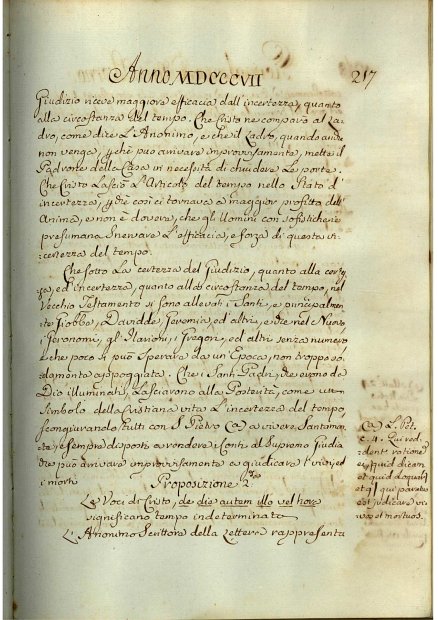 Anno MDCCCVII
217
Giudizio riceve maggiore efficacia dall'incertezza, quanto
alla circostanza del tempo. Che Cristo ne compara al La-
dro, come dice L'Anonimo, e che il Ladro, quando anche
non venga, p̃chè può arrivare improvvisamente, mette il
Padrone della Casa in necessità di chiudere Le porte.
Che Cristo Lasciò L'Articolo del tempo nello Stato d'
incertezza, p̃chè così ci tornava a maggior profitto dell'
Anima, e non è dovere, che gl'Uomini con sofisticherie
presumano Snervare L'efficacia, e forza di questa in-
certezza del tempo.
Che sotto La certezza del Giudizio, quanto alla
ed incertezza, quanto alla circostanza del tempo, nel
Vecchio Testamento si sono allevati i Santi, e principalmen-
te Giobbe, Davidde, Geremia, ed altri, e che nel Nuovo,
i Geronimi, gl'Ilarioni, i Gregori, ed altri senza numero
e che poco si può Sperare da un'Epoca, non troppo so-
damente appoggiata. Che i Santi Padri, che erano da
Dio illuminati, Lasciarono alla Posterità, come un
Simbolo della Cristiana vita L'incertezza del tempo,
scongiurando tutti con S. Pietro (a) a vivere Santamen-
te, e sempre disposti a rendere i Conti al Supremo Giudice
che può arrivare improvvisamente a giudicare i vivi, ed
i morti
Proposizione 2.
Le Voci di Cristo, de die autem illo vel hora
significano tempo indeterminato
L'Anonimo Scrittore della Lettera rappresenta
(a) I. Pet.
c. 4. Qui red-
dent rationem
ei, qui
et qui paratus
est judicare vi-
vos et mortuos.